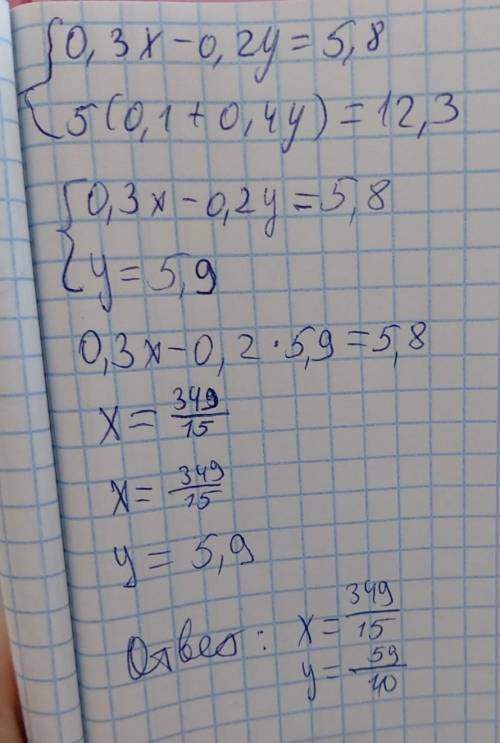 0,3x-0,2y=5,8
5(0,1+0,4y)=12,3
0,3x-0,2y=5,8
y=5,9
0,3x-0,2·5,9=5,8
x=349/15
x=349/15
y=5,9
Ответ: x=349/15
y=59/10